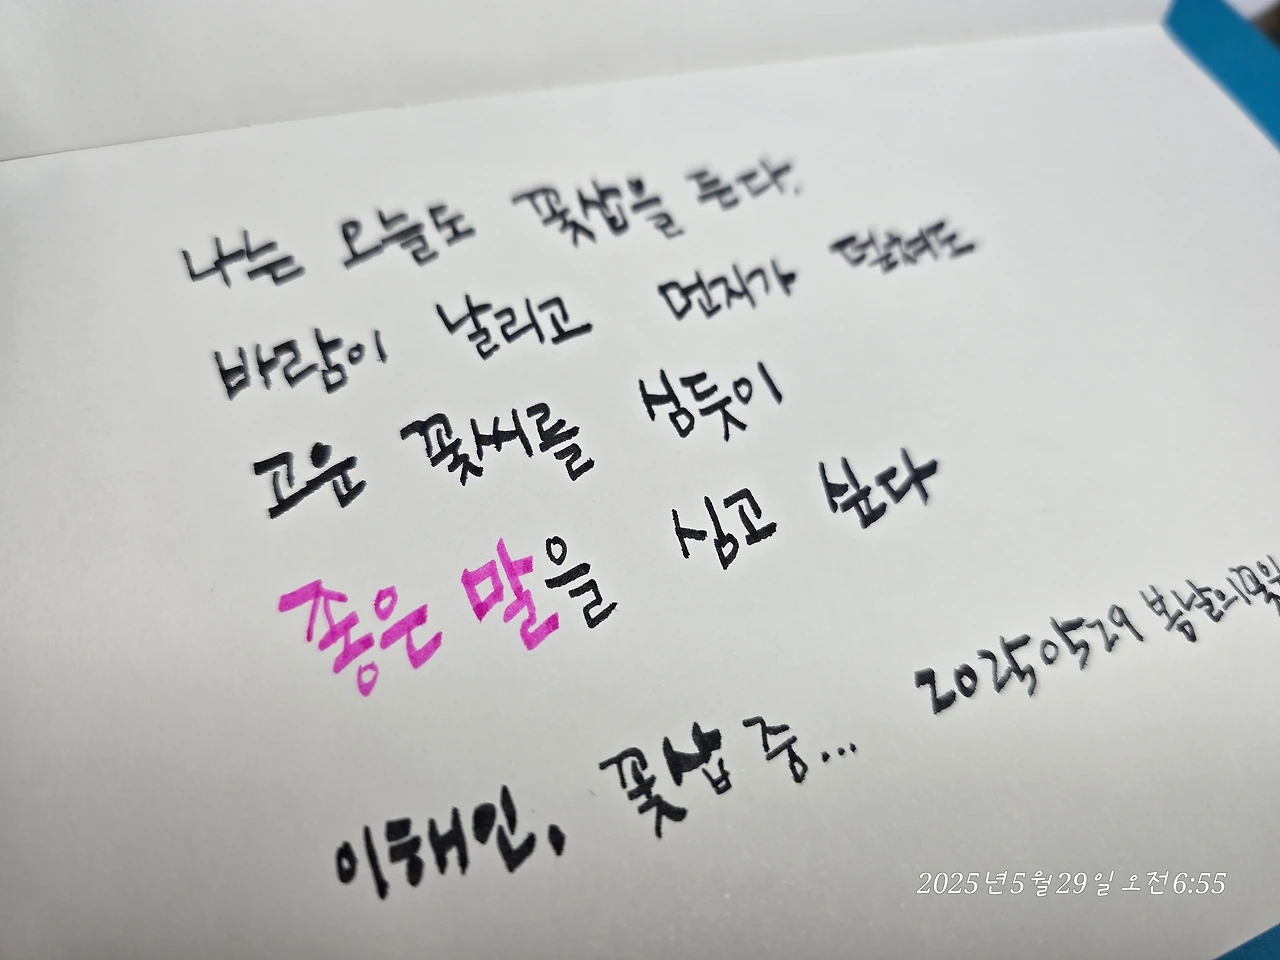 나는 오늘도 꽃삽을 든다.
바람이 날리고 먼지가 덮쳐도
고운 꽃씨를 심듯이
좋은 말을 심고 싶다
20250529 봄날의
이해인, 꽃삽 중...
2025년5월29일 오전6:55